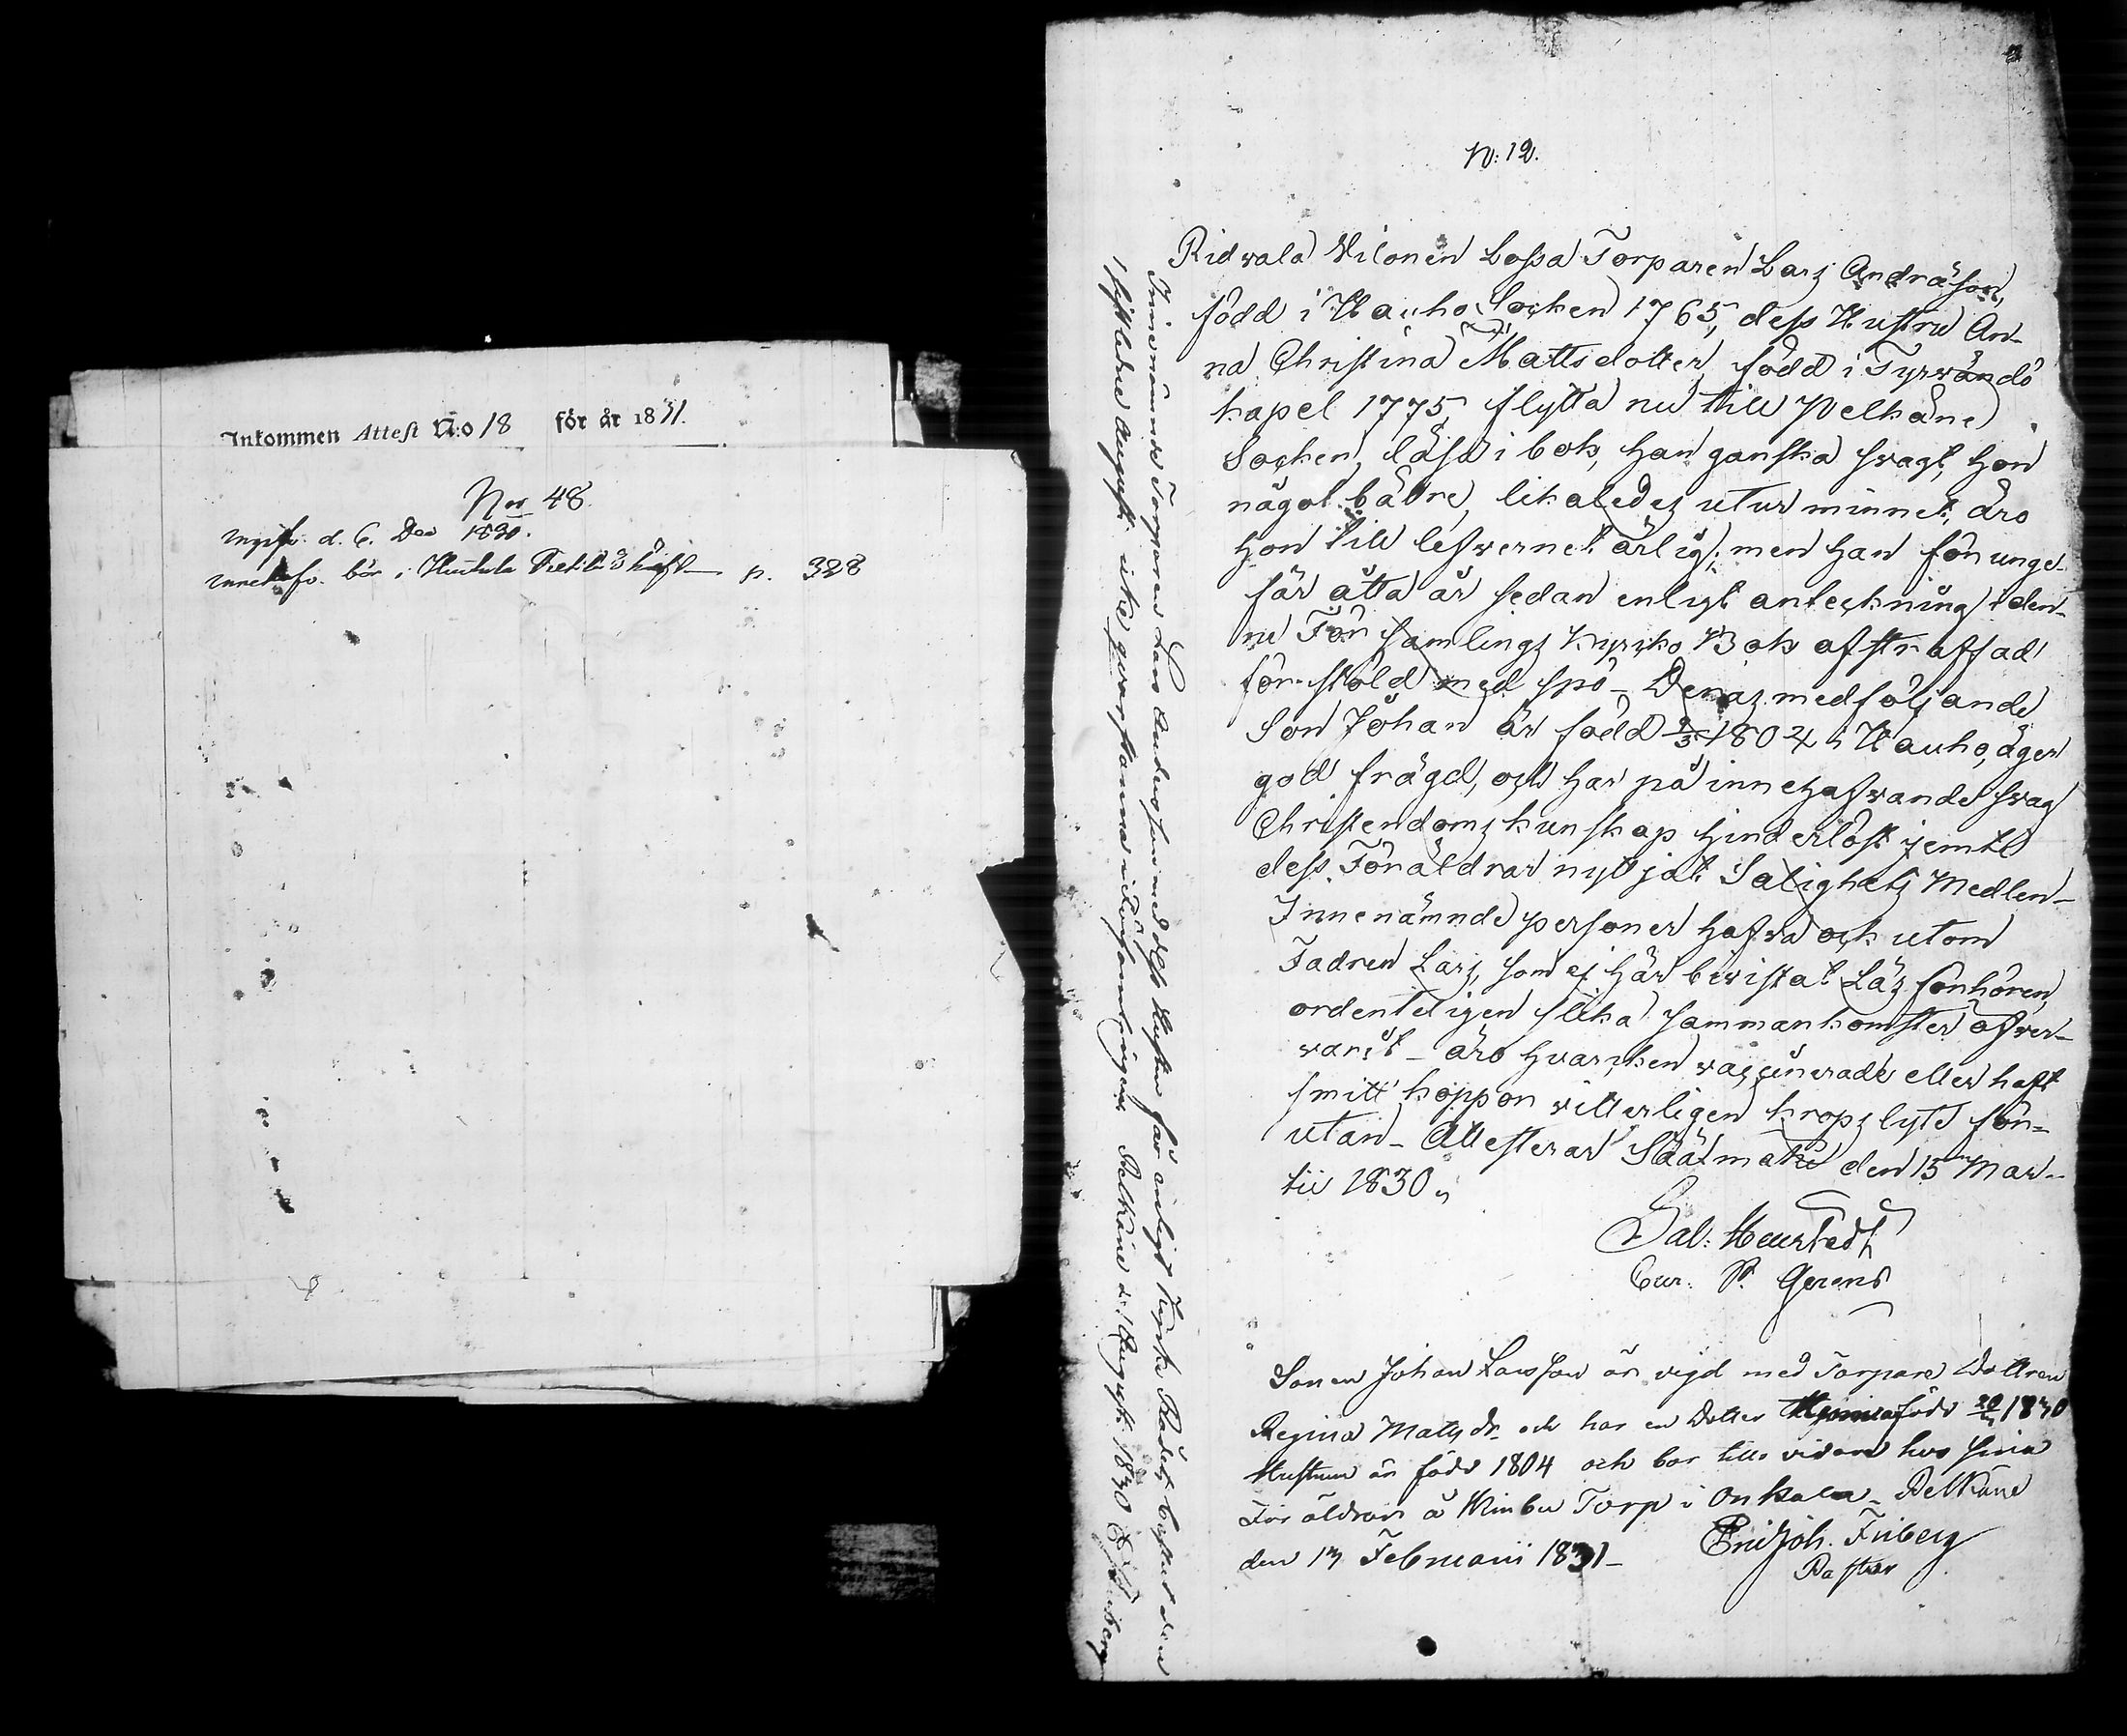 Inkommen Attest N:o 18 för år 1831.
Nro 48.
d. 6. Dec 1830.
bör i p. 328
N: 12.
Ridvala Wilonen Lossa Torparen Lars Andräson,
född i Hauho Socken 1765, dess Hustru An-
na Christina Mattsdotter, född i Tyrwändö
kapel 1775, flytta nu till Pelkäne
Socken, läsa i bok, han ganska swagt, hon
något bättre, likaledes utur minnet, äro
hon till lefwernet ärlig; men han för unge-
fär åtta år sedan enligt anteckning i den-
na Församlings Kyrko Bok afstraffad
för stöld med spö _ Deras medföljande
Son Johan är född 1804 i Hauho, äger
god frägd, och har på innehafwande swag
Christendoms kunskap hinderlöst jemte
dess Föräldrar nyttjat Salighets Medlen _
Innenämnde personer hafwa ock utom
Fadren Lars, som ej här bewistat Läs förhören,
ordenteligen slika sammankomster öfwer-
warit _ äro hwarcken vaccinerade eller haft
smitt koppor witterligen kropslyte för-
utan _ Attesterar Säätmäki den 15 Mar-
tii 1830.
Sal: Heurstedt
Cur. P. Gerens
Sonen Johan Larsson är vigd med Torpare Dottren
Regina Matsdr och har en Dotter född 1830
Hustrun är född 1804 och bor tills vidare hos sina
Föräldrar å Torp i Onkala _ Pelkäne
den 13 Februarii 1831 _ Eric Joh. Friberg
Pastor
Innenämnde Torparen Lars Andersson med dess Hustru får enligt Kyrko Rådets beslut den
1 sistledne Augusti icke qvarstanna i Församlingen. Pelkäne d. Augusti 1830 E. J. Friberg